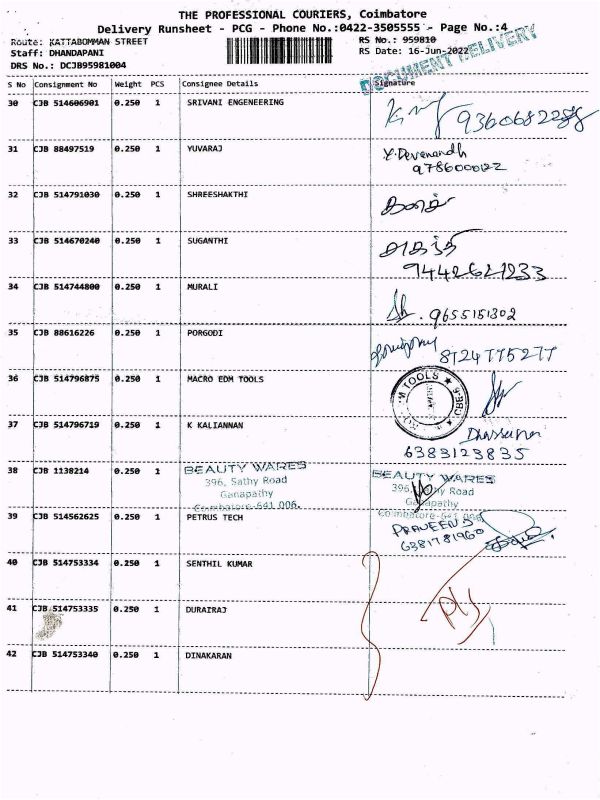 THE PROFESSIONAL COURIERS, Coimbatore
Delivery Runsheet - PCG - Phone No.:0422-3505555 - Page No.:4
Route: KATTABOMMAN STREET RS No.: 959810
Staff: DHANDAPANI RS Date: 16-Jun-2022
DRS No.: DCJB95981004
DOCUMENT DELIVERY
S No Consignment No Weight PCS Consignee Details Signature
30 CJB 514606901 0.250 1 SRIVANI ENGENEERING
9360682288
31 CJB 88497519 0.250 1 YUVARAJ Y.Devanandh
9786000122
32 CJB 514791030 0.250 1 SHREESHAKTHI
33 CJB 514670240 0.250 1 SUGANTHI
9442621233
34 CJB 514744800 0.250 1 MURALI
9655151302
35 CJB 88616226 0.250 1 PORGODI 8124775277
36 CJB 514796875 0.250 1 MACRO EDM TOOLS M TOOLS ★ CBE-6
37 CJB 514796719 0.250 1 K KALIANNAN
6383123835
38 CJB 1138214 0.250 1 BEAUTY WARES BEAUTY WARES
396, Sathy Road 396, Sathy Road
Ganapathy Ganapathy
Coimbatore-641 006. Coimbatore-641 006.
39 CJB 514562625 0.250 1 PETRUS TECH PRAVEEN S
6381781960
40 CJB 514753334 0.250 1 SENTHIL KUMAR
41 CJB 514753335 0.250 1 DURAIRAJ
42 CJB 514753340 0.250 1 DINAKARAN